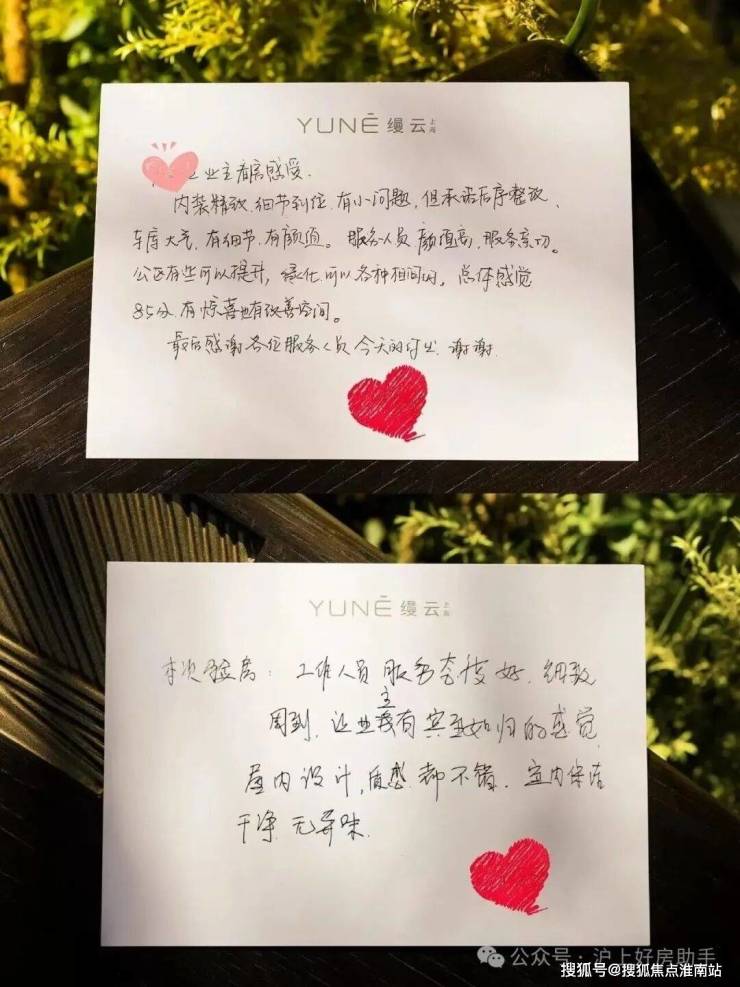 YUNĒ 缦云上海
业主看房感受.
内装精致.细节到位.有小问题,但承诺后序整改、
车库大气,有细节.有颜值。服务人员 颜值高,服务亲切。
公区有些可以提升,绿化可以各种相间的。总体感觉
85分.有惊喜也有改善空间。
最后感谢各位服务人员今天的付出.谢谢.
YUNĒ 缦云上海
本次验房:工作人员服务态度好.细致
周到,让业主有宾至如归的感觉
屋内设计,质感都不错.室内保洁
干净 无异味.
公众号·沪上好房助手
搜狐号@搜狐焦点淮南站